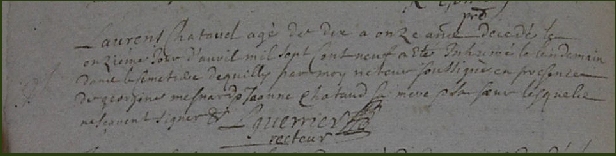 Laurens Chataud agé de dix a onze ans decedé le
onzième jour d'auril mil sept cent neuf a eté Inhumé le lendemain
dans le Cimetière par moy recteur soussigné en presence
de mesnard Jeanne Chataud sa mere sa soeur lesquelle
ne sçauent signer &
Lguerrier
recteur